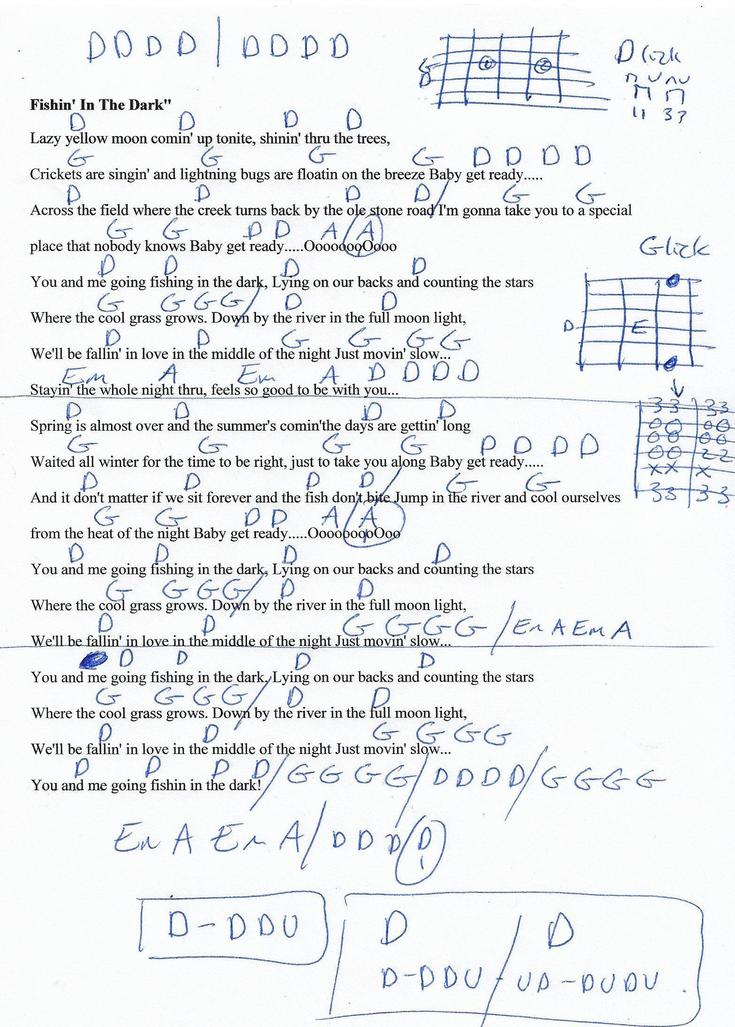 D D D D | D D D D
D lick
G
D
n u n u
11 33
Fishin' In The Dark"
D D D D
Lazy yellow moon comin' up tonite, shinin' thru the trees,
G G G G D D D D
Crickets are singin' and lightning bugs are floatin on the breeze Baby get ready.....
D D D D/ G G
Across the field where the creek turns back by the ole stone road I'm gonna take you to a special
G G D D A/A
place that nobody knows Baby get ready.....OooodooOooo
G lick
D D D D
You and me going fishing in the dark, Lying on our backs and counting the stars
G G G G/ D D
Where the cool grass grows. Down by the river in the full moon light,
D E
D D G G G G
We'll be fallin' in love in the middle of the night Just movin' slow...
Em A Em A D D D D
Stayin' the whole night thru, feels so good to be with you...
33 33
00 00
00 00
00 22
xx x
33 33
D D D D
Spring is almost over and the summer's comin'the days are gettin' long
G G G G D D D D
Waited all winter for the time to be right, just to take you along Baby get ready.....
D D D D/ G G
And it don't matter if we sit forever and the fish don't bite Jump in the river and cool ourselves
G G D D A/A
from the heat of the night Baby get ready.....OoooboooOoo
D D D D
You and me going fishing in the dark, Lying on our backs and counting the stars
G G G G/ D D
Where the cool grass grows. Down by the river in the full moon light,
D D G G G G / Em A Em A
We'll be fallin' in love in the middle of the night Just movin' slow...
D D D D
You and me going fishing in the dark, Lying on our backs and counting the stars
G G G G/ D D
Where the cool grass grows. Down by the river in the full moon light,
D D G G G G
We'll be fallin' in love in the middle of the night Just movin' slow...
D D D D/ G G G G/ D D D D/ G G G G
You and me going fishin in the dark!
Em A Em A/ D D D/D
D - D D U
D / D
D - D D U - U D - D U D U